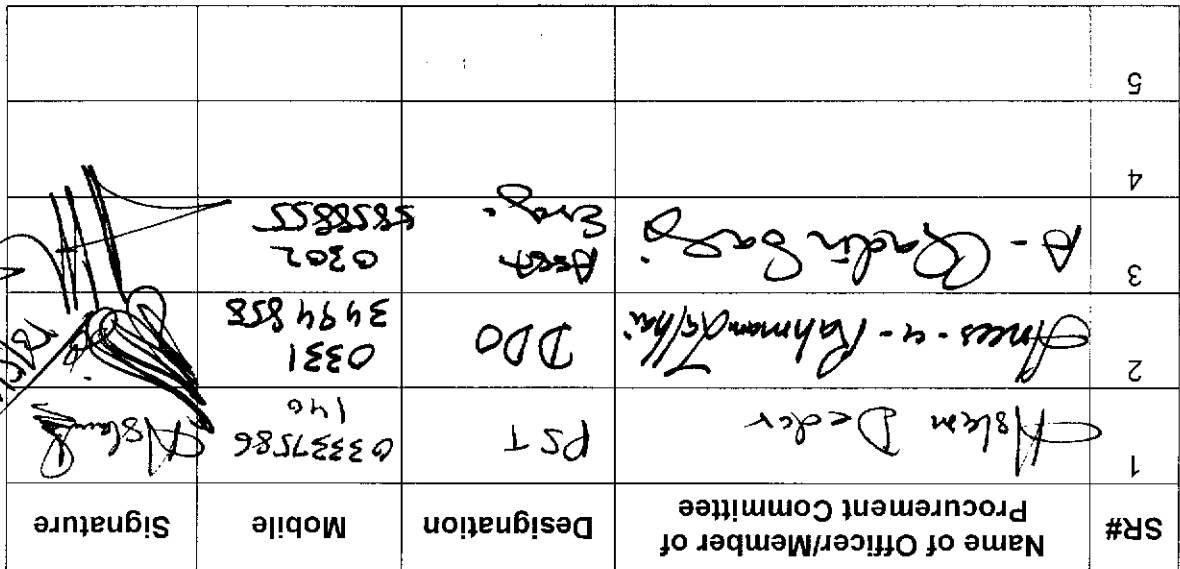 SR#
Name of Officer/Member of
Procurement Committee
Designation
Mobile
Signature
1
Aslam Dedar
PST
03337586
140
Aslam
2
Anees-u-Rahman
DDO
0331
3494858
3
A - Qadir
Asst
Eng.
0302
5858855
4
5